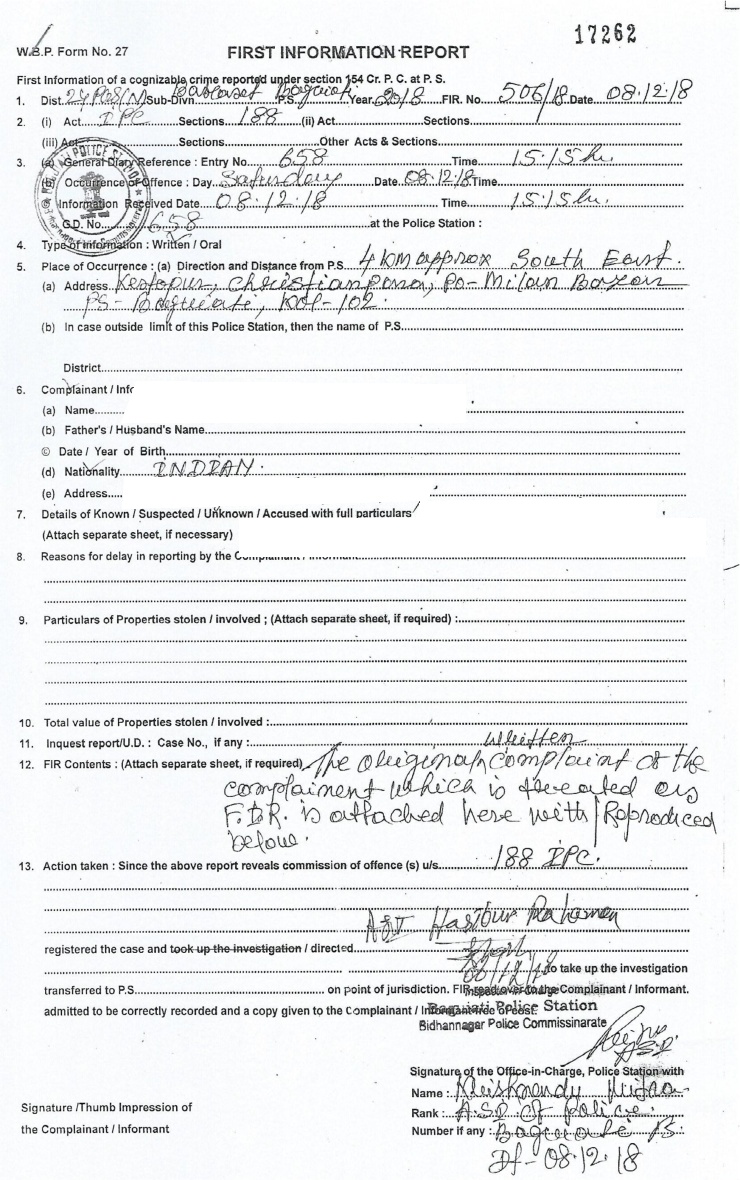 17262
W.B.P. Form No. 27
FIRST INFORMATION REPORT
First Information of a cognizable crime reported under section 154 Cr. P. C. at P. S.
1. Dist. 24 PGS(N) Sub-Divn. Barasat P.S. Baguiati Year 2018 FIR. No. 506/18 Date 08.12.18
2. (i) Act IPC Sections 188 (ii) Act Sections
(iii) Act Sections Other Acts & Sections
3. (a) General Diary Reference : Entry No. 658 Time 15:15 hr.
(b) Occurrence of Offence : Day Saturday Date 08.12.18 Time
© Information Received Date 08.12.18 Time 15:15 hr.
G.D. No. 658 at the Police Station :
4. Type of information : Written / Oral
5. Place of Occurrence : (a) Direction and Distance from P.S. 4 km approx South East.
(a) Address Kestopur, Christianpara, PO- Milan Bazar
PS- Baguiati, Kol-102.
(b) In case outside limit of this Police Station, then the name of P.S.
District
6. Complainant / Infr
(a) Name
(b) Father's / Husband's Name
© Date / Year of Birth
(d) Nationality INDIAN.
(e) Address
7. Details of Known / Suspected / Unknown / Accused with full particulars
(Attach separate sheet, if necessary)
8. Reasons for delay in reporting by the Complainant / Informant
9. Particulars of Properties stolen / involved ; (Attach separate sheet, if required) :
10. Total value of Properties stolen / involved :
11. Inquest report/U.D. : Case No., if any :
written
12. FIR Contents : (Attach separate sheet, if required) The original complaint of the
complainent which is treated as
F.I.R. is attached here with / Reproduced
below.
13. Action taken : Since the above report reveals commission of offence (s) u/s. 188 IPC.
ASI Hasibur Rahaman
registered the case and took up the investigation / directed
08/12/18 to take up the investigation
transferred to P.S. on point of jurisdiction. FIR read over to the Complainant / Informant.
admitted to be correctly recorded and a copy given to the Complainant / Informant free of cost.
Inspector-in-Charge
Baguiati Police Station
Bidhannagar Police Commissinarate
Signature of the Office-in-Charge, Police Station with
Name : Mitra
Rank : A.S.I. of Police.
Number if any : Baguiati PS.
Dt- 08.12.18
Signature /Thumb Impression of
the Complainant / Informant